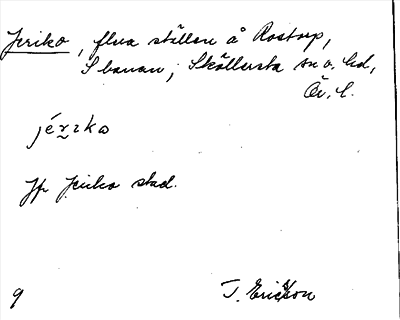 Jeriko, flera ställen å Rostorp,
S banan; Sköllersta sn o. hd,
Ör. l.
jérıka
Jfr Jeriko stad.
9
T. Ericsson